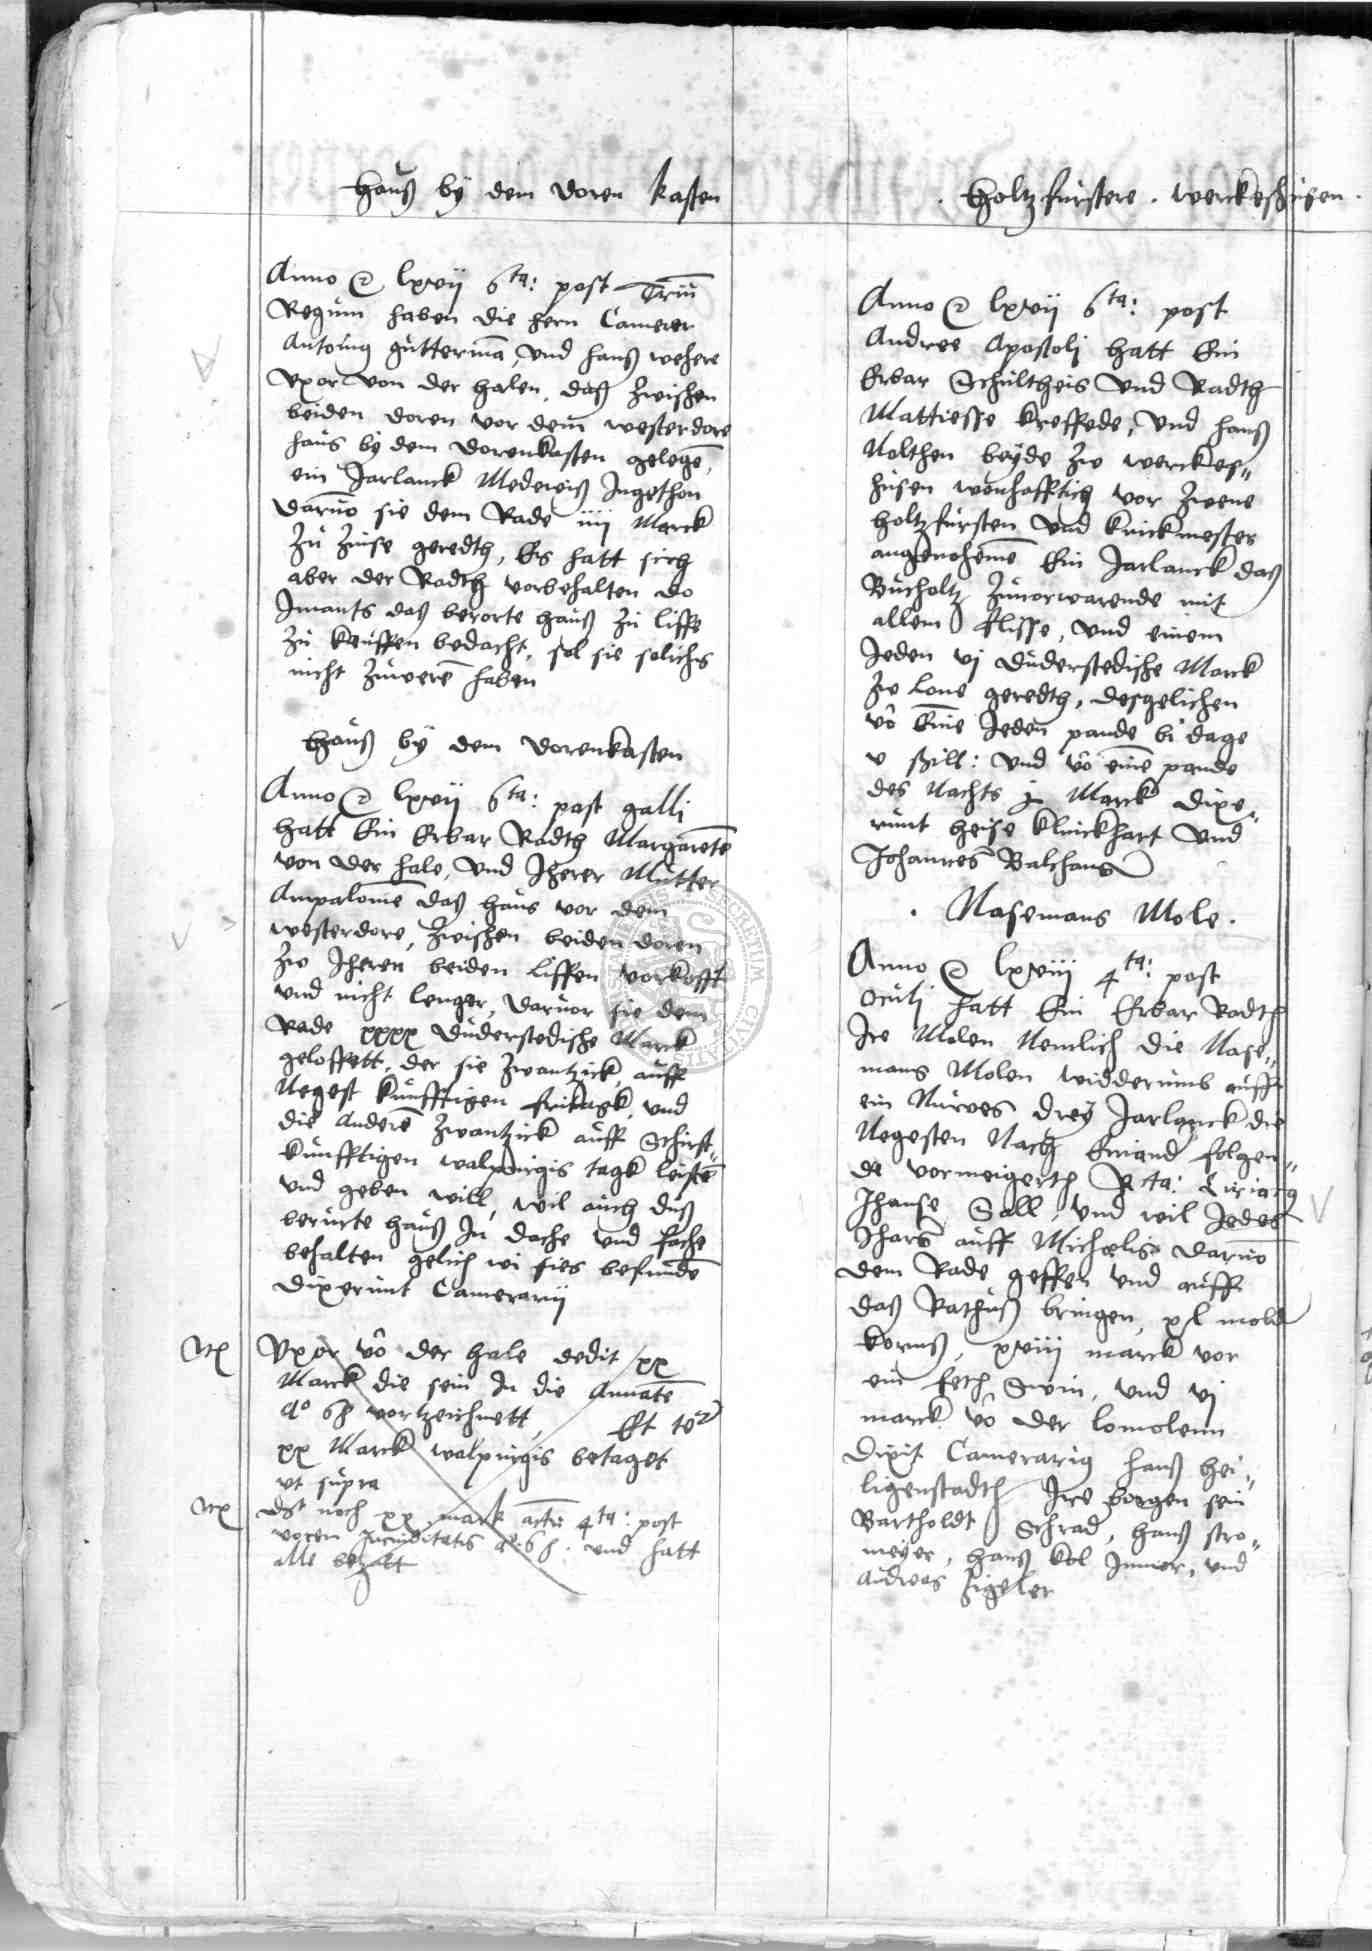 Hauß by dem doren kasten
Anno &c lxvij 6ta: post Trium
Regum haben die hern Camerer
Antonius gutterman, und hanß wehere
Uxor von der halen, daß zwischen
beiden doren vor dem westerdore
hauß by dem dorenkasten gelegen,
ein Jarlanck Medeweiß Ingethon
daruor sie dem Rade iiij Marck
zu zinse geredth, Es hatt sich
aber der Radth vorbehalten do
Imants daß berorte hauß zu liffe
zu keuffen bedacht, sol sie solichs
nicht zuweren haben
Hauß by dem dorenkasten
Anno &c lxvij 6ta: post galli
hatt Ein Erbar Radth Margareten
von der hale, und Iherer Mutter
Anpalomē daß hauß vor dem
westerdore, zwischen beiden doren
zu Iheren beiden liffen vorkofft
und nicht lenger, daruor sie dem
Rade xxxx duderstedische Marck
geloffett, der sie zwantzick auff
Negest kunfftigen fritagk, und
die anderē zwantzick auff Schirst„
kunfftigen walpurgis tagk leistē
und geben will, wil auch duß
berurte hauß In dache und fache
behalten gelich wi sies befundē
dixerunt Camerarij
Uxor vō der hale dedit xx
Marck die sein In die Annatē
ao 68 vortzeichnett, Et te[r]
xx Marck walpurgis betaget
ut supra
dt noch xx mark actū 4ta: post
vocem Jucunditatis ao. 68. und hatt
alle bezalt
Holtzfurstere . Werckeshusen .
Anno &c lxvij 6ta: post
Andree Apostolj hatt Ein
Erbar Schultheis und Radth
Mattiesse kreffede, und hanß
Nolthen beyde zu werckes„
husen wonhafftich vor zwene
holtzfursten und knickmester
angenohemē Ein Jarlanck daß
Bucholtz zuuorwarende mit
allem flisse, und einem
Jeden vj duderstedische Marck
zu lone geredth, desgelichen
vō Einē Jeden pande bi dage
v ßill: und vō einē pande
des Nachts j Marck dixe„
runt heise klinckhart und
Johannes Balchans
. Nasemans Mole .
Anno &c lxviij 4ta: post
Oculj hatt Ein Erbar Radth
Ire Molen Nemlich die Nase„
mans Molen widderumb auff
ein Nuwes drey Jarlanck die
Negesten Nach Einand folgen„
de vormeigerth Rta: Ciriacus
Jhanse Sall, und wil Jedes
Jhars auff Michaelis daruō
dem Rade geffen und auff
daß Rathuß bringen, xl mold
korns, xviij marck vor
ein feth Swin, und vj
marck vō der lomolenn
Dixit Camerarius hanß hei„
ligenstadth Ire borgen sein
Bartholdt Schrad, hanß stro„
meyer, hanß kol Junior, und
andreas Zigeler